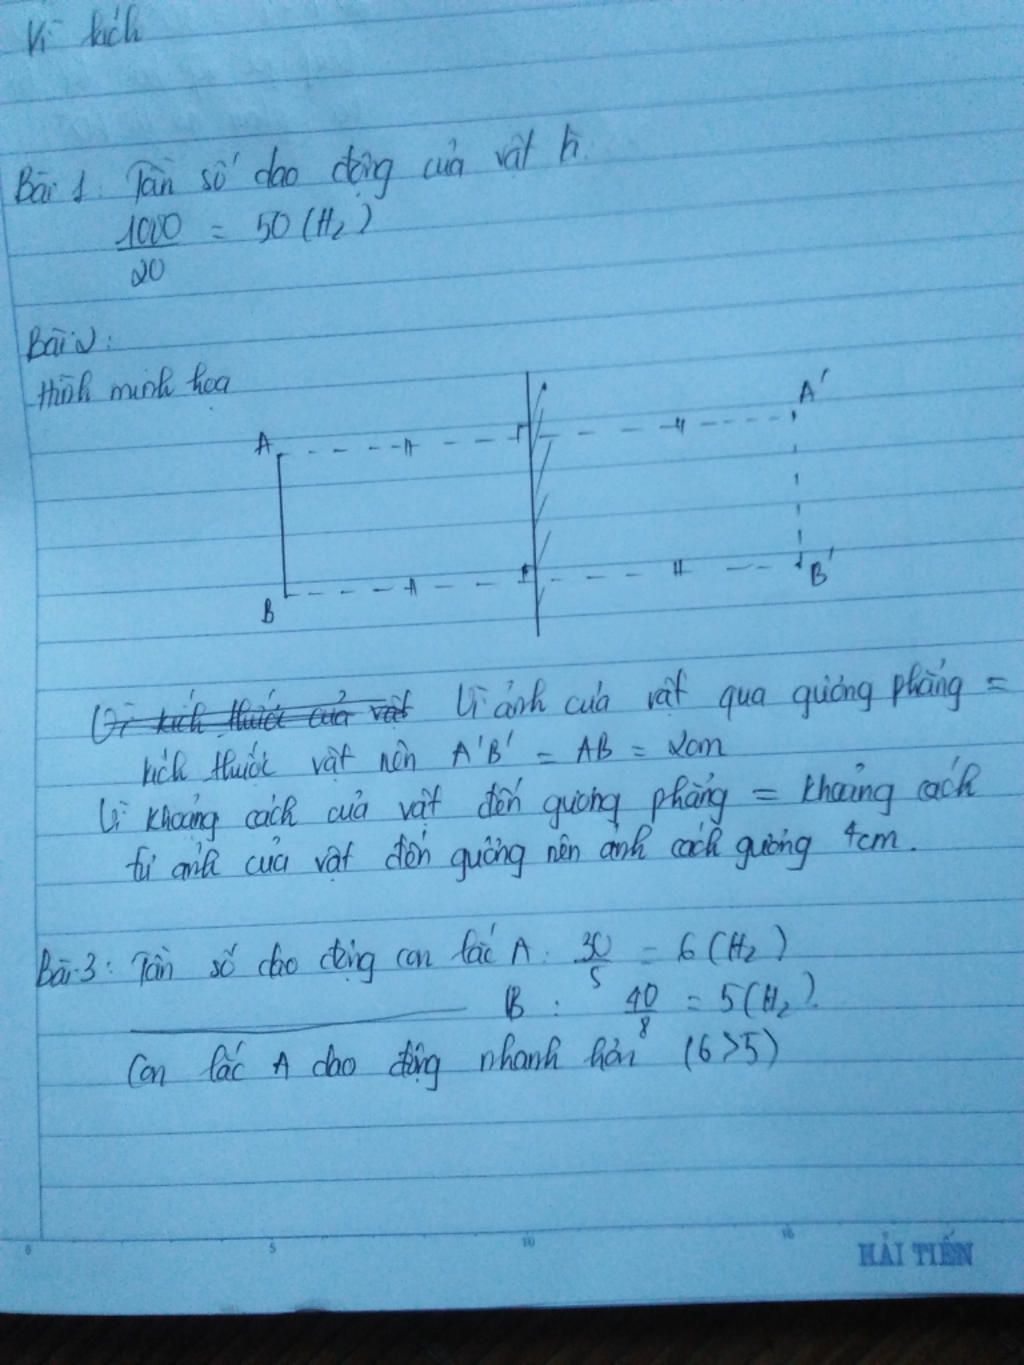 Vì kích
Bài 1: Tần số dao động của vật là:
1000 / 20 = 50 (Hz)
Bài 2:
Hình minh họa
A A'
B B'
Vì kích thước của vật Vì ảnh của vật qua gương phẳng =
kích thước vật nên A'B' = AB = 2cm
Vì khoảng cách của vật đến gương phẳng = khoảng cách
từ ảnh của vật đến gương nên ảnh cách gương 4cm.
Bài 3: Tần số dao động con lắc A: 30 / 5 = 6 (Hz)
B : 40 / 8 = 5 (Hz).
Con lắc A dao động nhanh hơn (6>5)
0 5 10 15
HẢI TIẾN